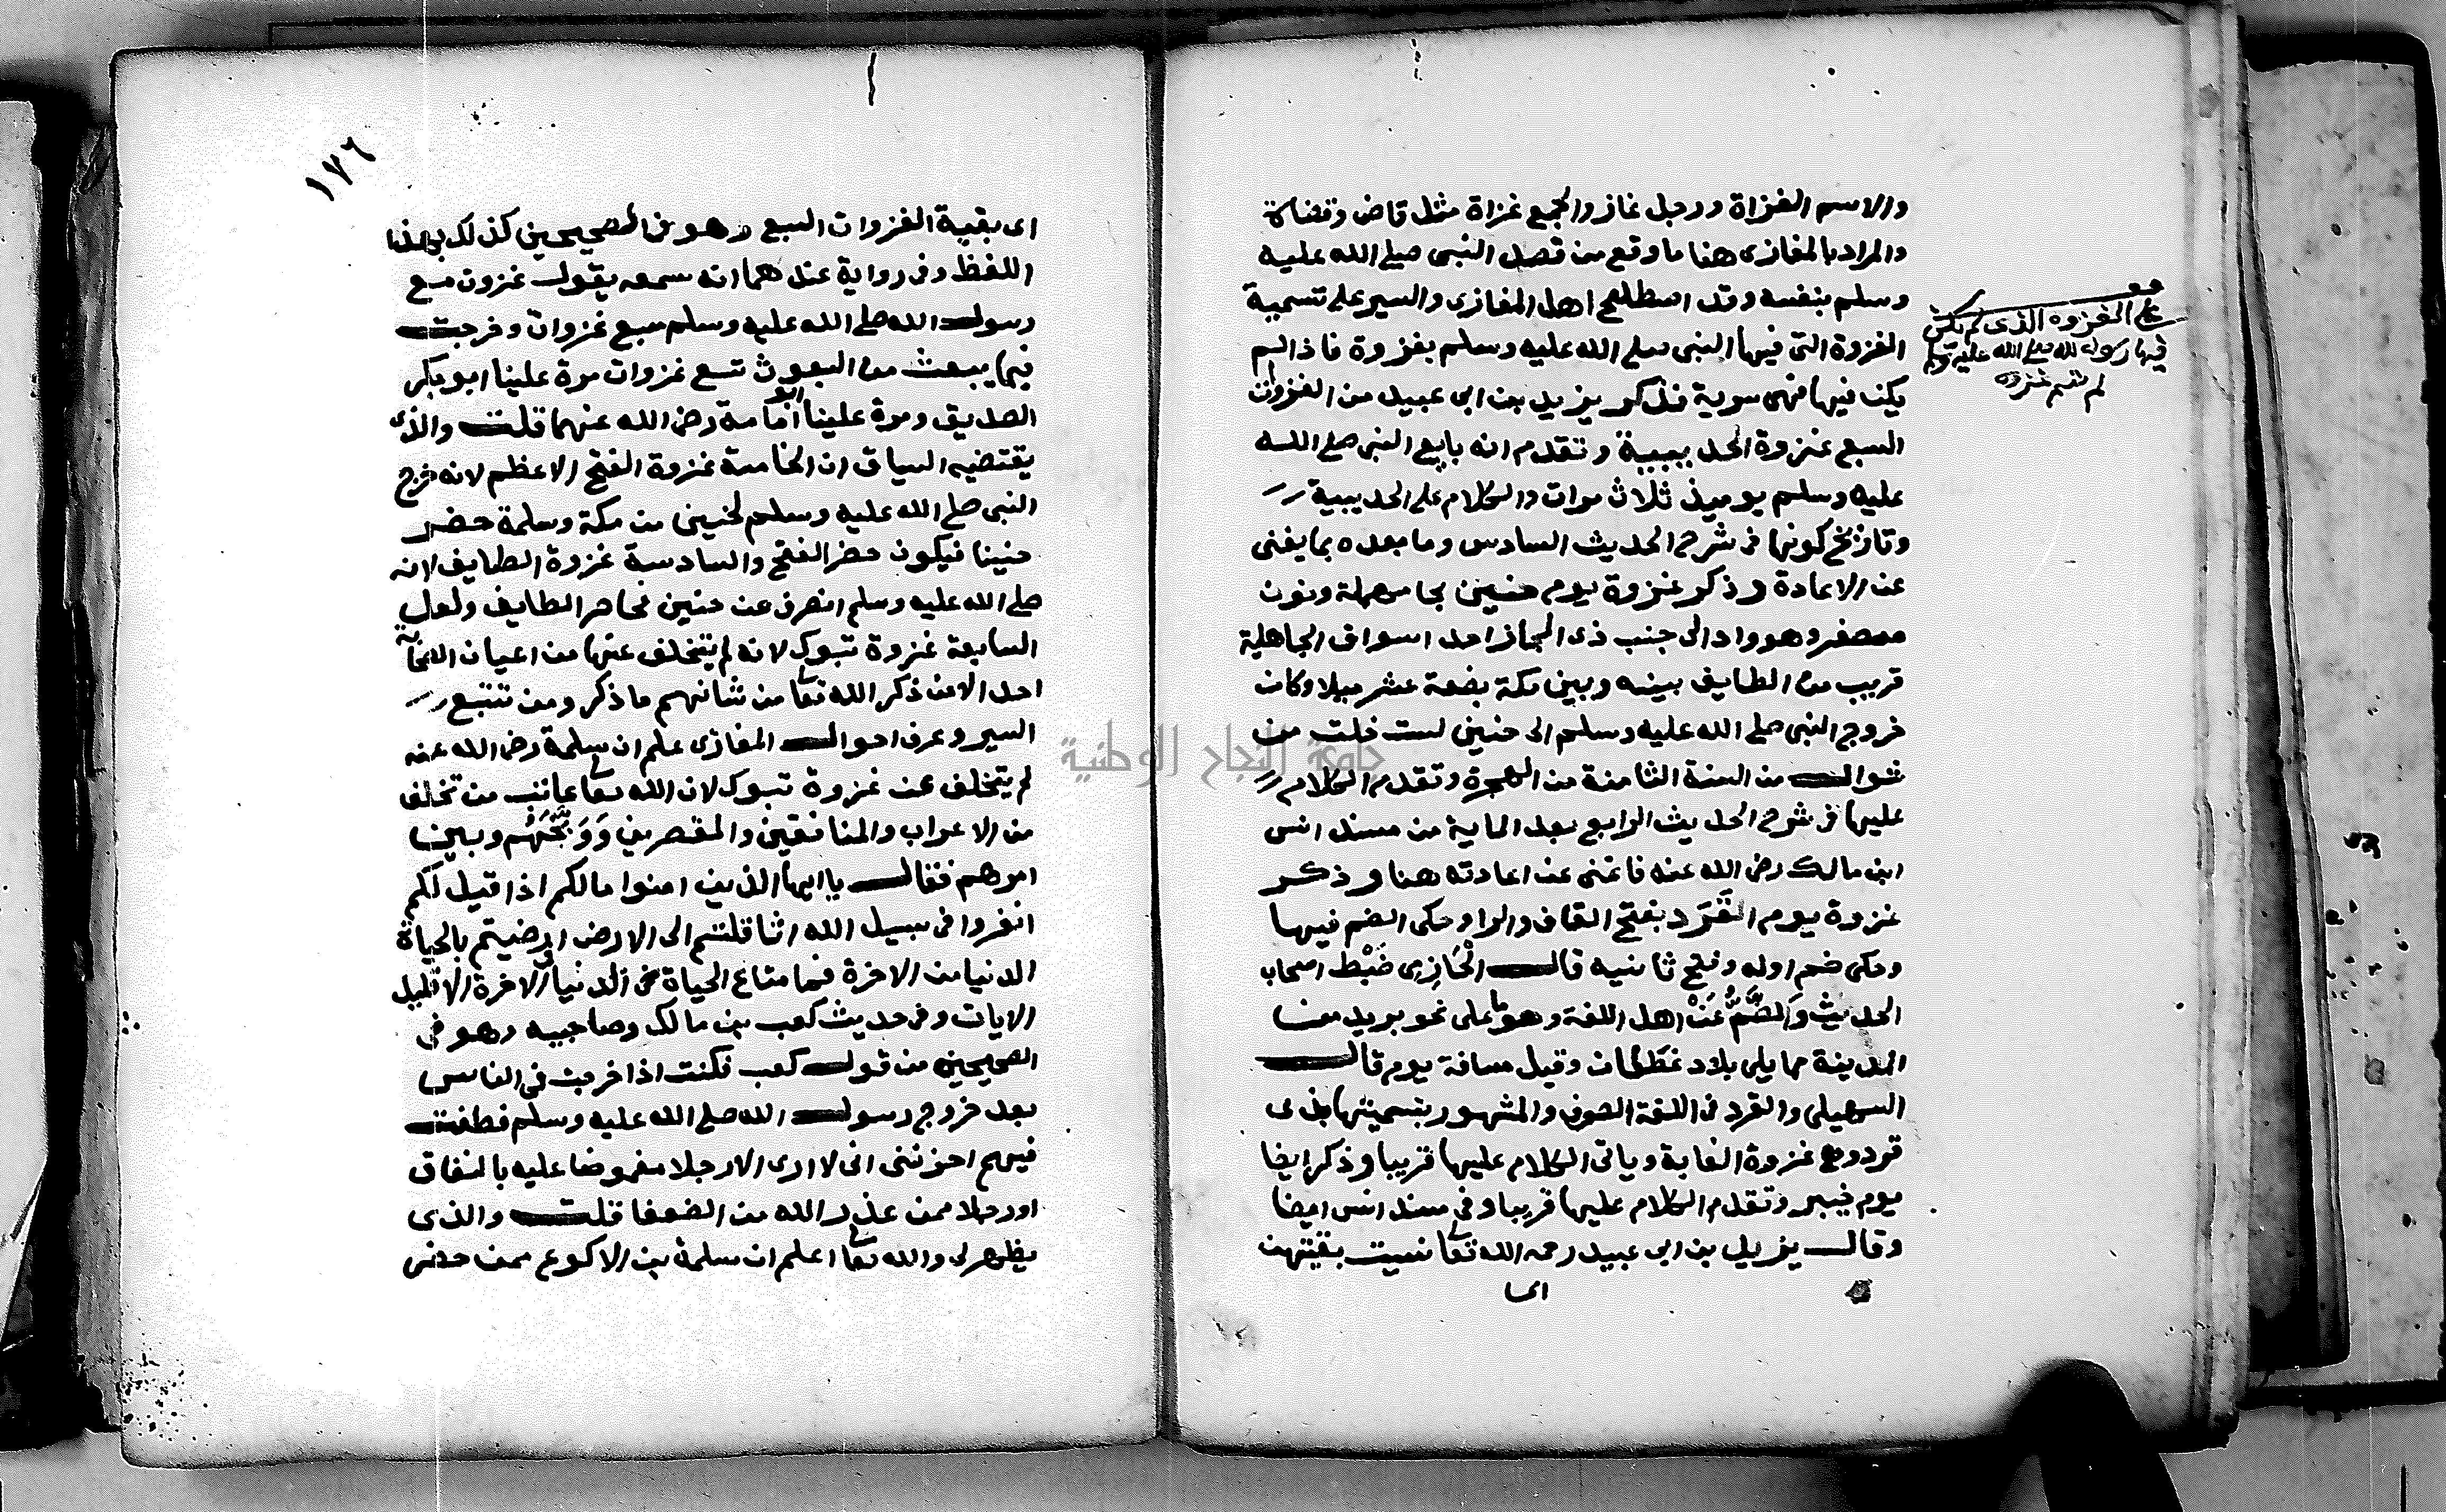 والاسم الغزاة ورجل غاز والجمع غزاة مثل قاض وقضاة
والمراد بالمغازى هنا ما وقع من قصد النبى صلى الله عليه
وسلم بنفسه وقد اصطلح اهل المغازى والسير على تسمية
الغزوة التى فيها النبى صلى الله عليه وسلم بغزوة فاذا لم
يكن فيها فهى سرية فذكر يزيد بن ابى عبيد من الغزوات
السبع غزوة الحديبية وتقدم انه بايع النبى صلى الله
عليه وسلم يوميذ ثلاث مرات والكلام على الحديبية
وتاريخ كونها فى شرح الحديث السادس وما بعده بما يغنى
عن الاعادة وذكر غزوة يوم حنين بحا مهملة ونون
مصغر وهو واد الى جنب ذى المجاز احد اسواق الجاهلية
قريب من الطايف بينه وبين مكة بضعة عشر ميلا وكان
خروج النبى صلى الله عليه وسلم الى حنين لست خلت من
شوال من السنة الثامنة من الهجرة وتقدم الكلام
عليها فى شرح الحديث الرابع بعد الماية من مسند انس
ابن مالك رضى الله عنه فاغنى عن اعادته هنا وذكر
غزوة يوم القَرَد بفتح القاف والرا وحكى الضم فيها
وحكى ضم اوله وفتح ثانيه قال الحازمى ضَبْط اصحاب
الحديث والضَّمُّ عَنْ اهل اللغة وهو ما على نحو بريد من
المدينة مما يلى بلاد غَطَفان وقيل مسافة يوم قال
السهيلى والقرد فى اللغة الصوف والمشهور بتسميتها بذى
قرد وهى غزوة الغابة وياتى الكلام عليها قريبا وذكر ايضا
يوم خيبر وتقدم الكلام عليها قريبا وفى مسند انس ايضا
وقال يزيد بن ابى عبيد رحمه الله تعا نسيت بقيتهن
على الغزوه الذى لم يكن
فيها رسول الله صلى الله عليه وسلم
لم تسم غزوه
١٧٦
اى بقية الغزوات السبع وهو فى الصحيحين كذلك بهذا
اللفظ وفى رواية عندهما انه سمعه يقول غزوت مع
رسول الله صلى الله عليه وسلم سبع غزوات وخرجت
فيما يبعث من البعوث تسع غزوات مرة علينا ابو بكر
الصديق ومرة علينا اسامة رضى الله عنهما قلت والذى
يقتضيه السياق ان الخامسة غزوة الفتح الاعظم لانه خرج
النبى صلى الله عليه وسلم لحنين من مكة وسلمة حضر
حنينا فيكون حضر الفتح والسادسة غزوة الطايف لانه
صلى الله عليه وسلم انصرف عن حنين فحاصر الطايف ولعل
السابعة غزوة تبوك لانه لم يتخلف عنها من اعيان الصحابة
احد الا من ذكر الله تعا من شانهم ما ذكر ومن تتبع
السير وعرف احوال المغازى علم ان سلمة رضى الله عنه
لم يتخلف عن غزوة تبوك لان الله تعا عاتب من تخلف
من الاعراب والمنافقين والمقصرين وَوَبَّخَهُم وبين
امرهم فقال يا ايها الذين امنوا مالكم اذا قيل لكم
انفروا فى سبيل الله اثاقلتم الى الارض ارضيتم بالحياة
الدنيا من الاخرة فما متاع الحياة الدنيا فى الاخرة الا قليل
الايات وفى حديث كعب بن مالك وصاحبيه وهو فى
الصحيحين من قول كعب فكنت اذا خرجت فى الناس
بعد خروج رسول الله صلى الله عليه وسلم فطفت
فيهم احزننى انى لا ارى الا رجلا مغموصا عليه بالنفاق
او رجلا ممن عذر الله من الضعفا قلت والذى
يظهر لى والله تعا اعلم ان سلمة بن الاكوع ممن حضر
جامعة النجاح الوطنية